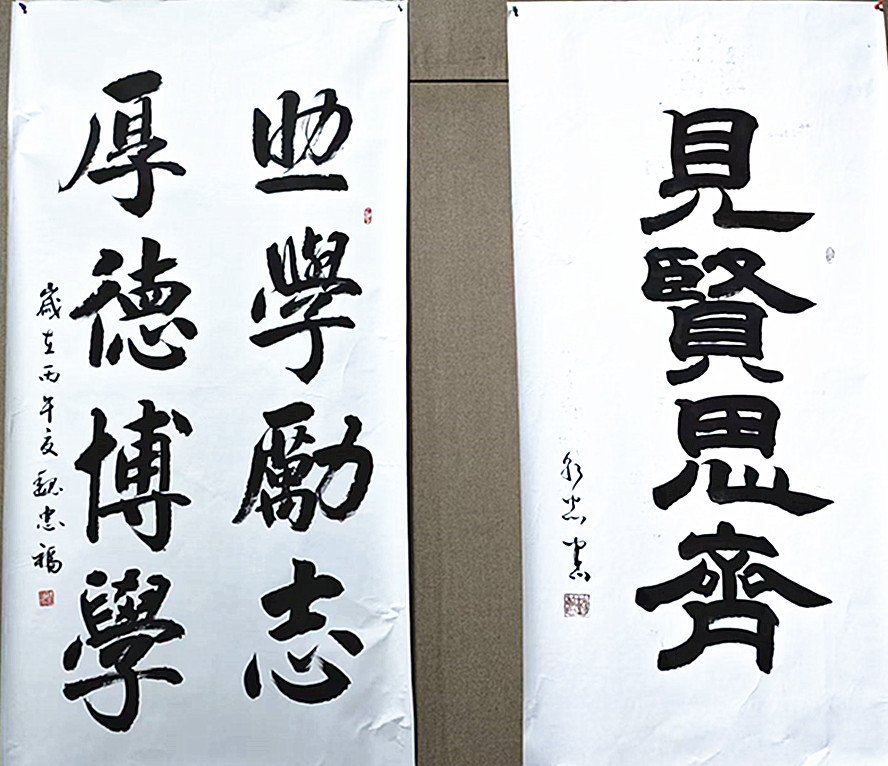 助學勵志
厚德博學
歲在丙午夏魏忠福
見賢思齊